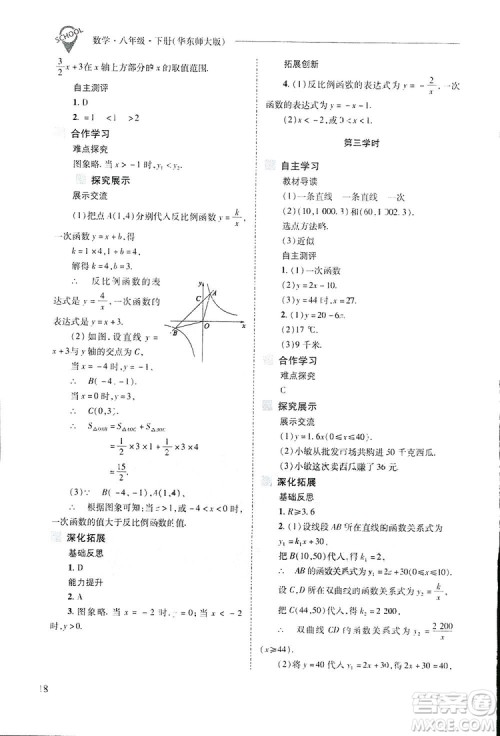 SCHOOL
数学·八年级·下册(华东师大版)
3/2 x+3在x轴上方部分的x的取值范围.
自主测评
1. D
2. ①②③
合作学习
难点探究
图象略.当x>-1时,y>0.
探究展示
展示交流
(1)把点A(1,4)分别代入反比例函数y=k/x,
一次函数y=x+b,得
k=1×4,1+b=4.
解得k=4,b=3.
∴ 反比例函数的表
达式是y=4/x,一次函数的
表达式是y=x+3.
(2)如图,设一次函数
y=x+3与y轴的交点为C,
当x=-4时,y=-1,
∴ B(-4,-1).
当x=0时,y=3,
∴ C(0,3).
∴ S△AOB=S△AOC+S△BOC
=1/2×3×4+1/2×3×1
=15/2.
(3)∵ B(-4,-1),A(1,4),
∴ 根据图象可知:当x>1或-4<x<0时,
一次函数的值大于反比例函数的值.
深化拓展
基础反思
1. D
2. A
能力提升
3. 图象略.当x>-4时,y>0;当x<-4时,
y<0.
18
拓展创新
4. (1)反比例函数的表达式为y=4/x,一次
函数的表达式为y=x+2.
(2)x<-2或0<x<2.
第三学时
自主学习
教材导读
(1)一条直线 一条直线
(2)(10,1 000.3)和(60,1 002.3)
选点方法略.
(3)近似
自主测评
1. (1)一次
(2)y=10x.
(3)y=44时,x=27.
2. (1)y=20-6x.
(2)y=-18.
(3)9千米.
合作学习
难点探究
C
探究展示
(1)y=1.6x(0≤x≤40).
(2)小敏从批发市场共购进50千克西瓜.
(3)小敏这次卖西瓜赚了36元.
深化拓展
基础反思
1. R≥3.6
2. (1)设线段AB所在直线的函数关系式为
y₁=k₁x+b.
把B(10,50)代入,得k₁=2,
∴ AB的函数关系式为y₁=2x+30.
设C、D所在双曲线的函数关系式为y₂=k₂/x.
把C(44,50)代入,得k₂=2 200.
∴ 双曲线CD的函数关系式为y₂=2 200/x
(x≥44).
(2)将y=40代入y₁=2x+30,得